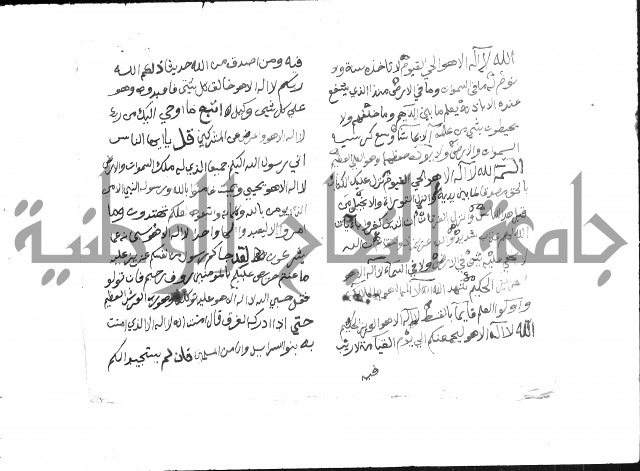 الله لا اله الا هو الحي القيوم لا تاخذه سنة ولا
نوم له ما في السموات وما في الارض منذا الذي يشفع
عنده الا باذنه يعلم ما بين ايديهم وما خلفهم ولا
يحيطون بشي من علمه الا بما شا وسع كرسيه
السموات والارض ولا يؤده حفظهما وهو العلي العظيم
الم الله لا اله الا هو الحي القيوم نزل عليك الكتاب
بالحق مصدقا لما بين يديه وانزل التورية والانجيل من
قبل هدا للناس وانزل الفرقان ان الذين كفروا بايات
الله لهم عذاب شديد والله عزيز ذو انتقام ان الله
لا يخفي عليه شي في الارض ولا في السماء لا اله الا هو
العزيز الحكيم شهد الله انه لا اله الا هو والملائكة
واولوا العلم قايما بالقسط لا اله الا هو العزيز الحكيم
الله لا اله الا هو ليجمعنكم الي يوم القيامة لا ريب
فيه
فيه ومن اصدق من الله حديثا ذلكم الله
ربكم لا اله الا هو خالق كل شي فاعبدوه وهو
علي كل شي وكيل اتبع ما اوحي اليك من ربك
لا اله الا هو واعرض عن المشركين قل يا ايها الناس
اني رسول الله اليكم جميعا الذي له ملك السموات والارض
لا اله الا هو يحيي ويميت فامنوا بالله ورسوله النبي الامي
الذي يومن بالله وكلماته واتبعوه لعلكم تهتدون وما
امروا الا ليعبدوا الها واحدا لا اله الا هو سبحانه عما
يشركون لقد جاكم رسول من انفسكم عزيز عليه
ما عنتم حريص عليكم بالمومنين روف رحيم فان تولوا
فقل حسبي الله لا اله الا هو عليه توكلت وهو رب العرش العظيم
حتي اذا ادركه الغرق قال امنت انه لا اله الا الذي امنت
به بنو اسراييل وانا من المسلمين فان لم يستجيبوا لكم
جامعة النجاح الوطنية